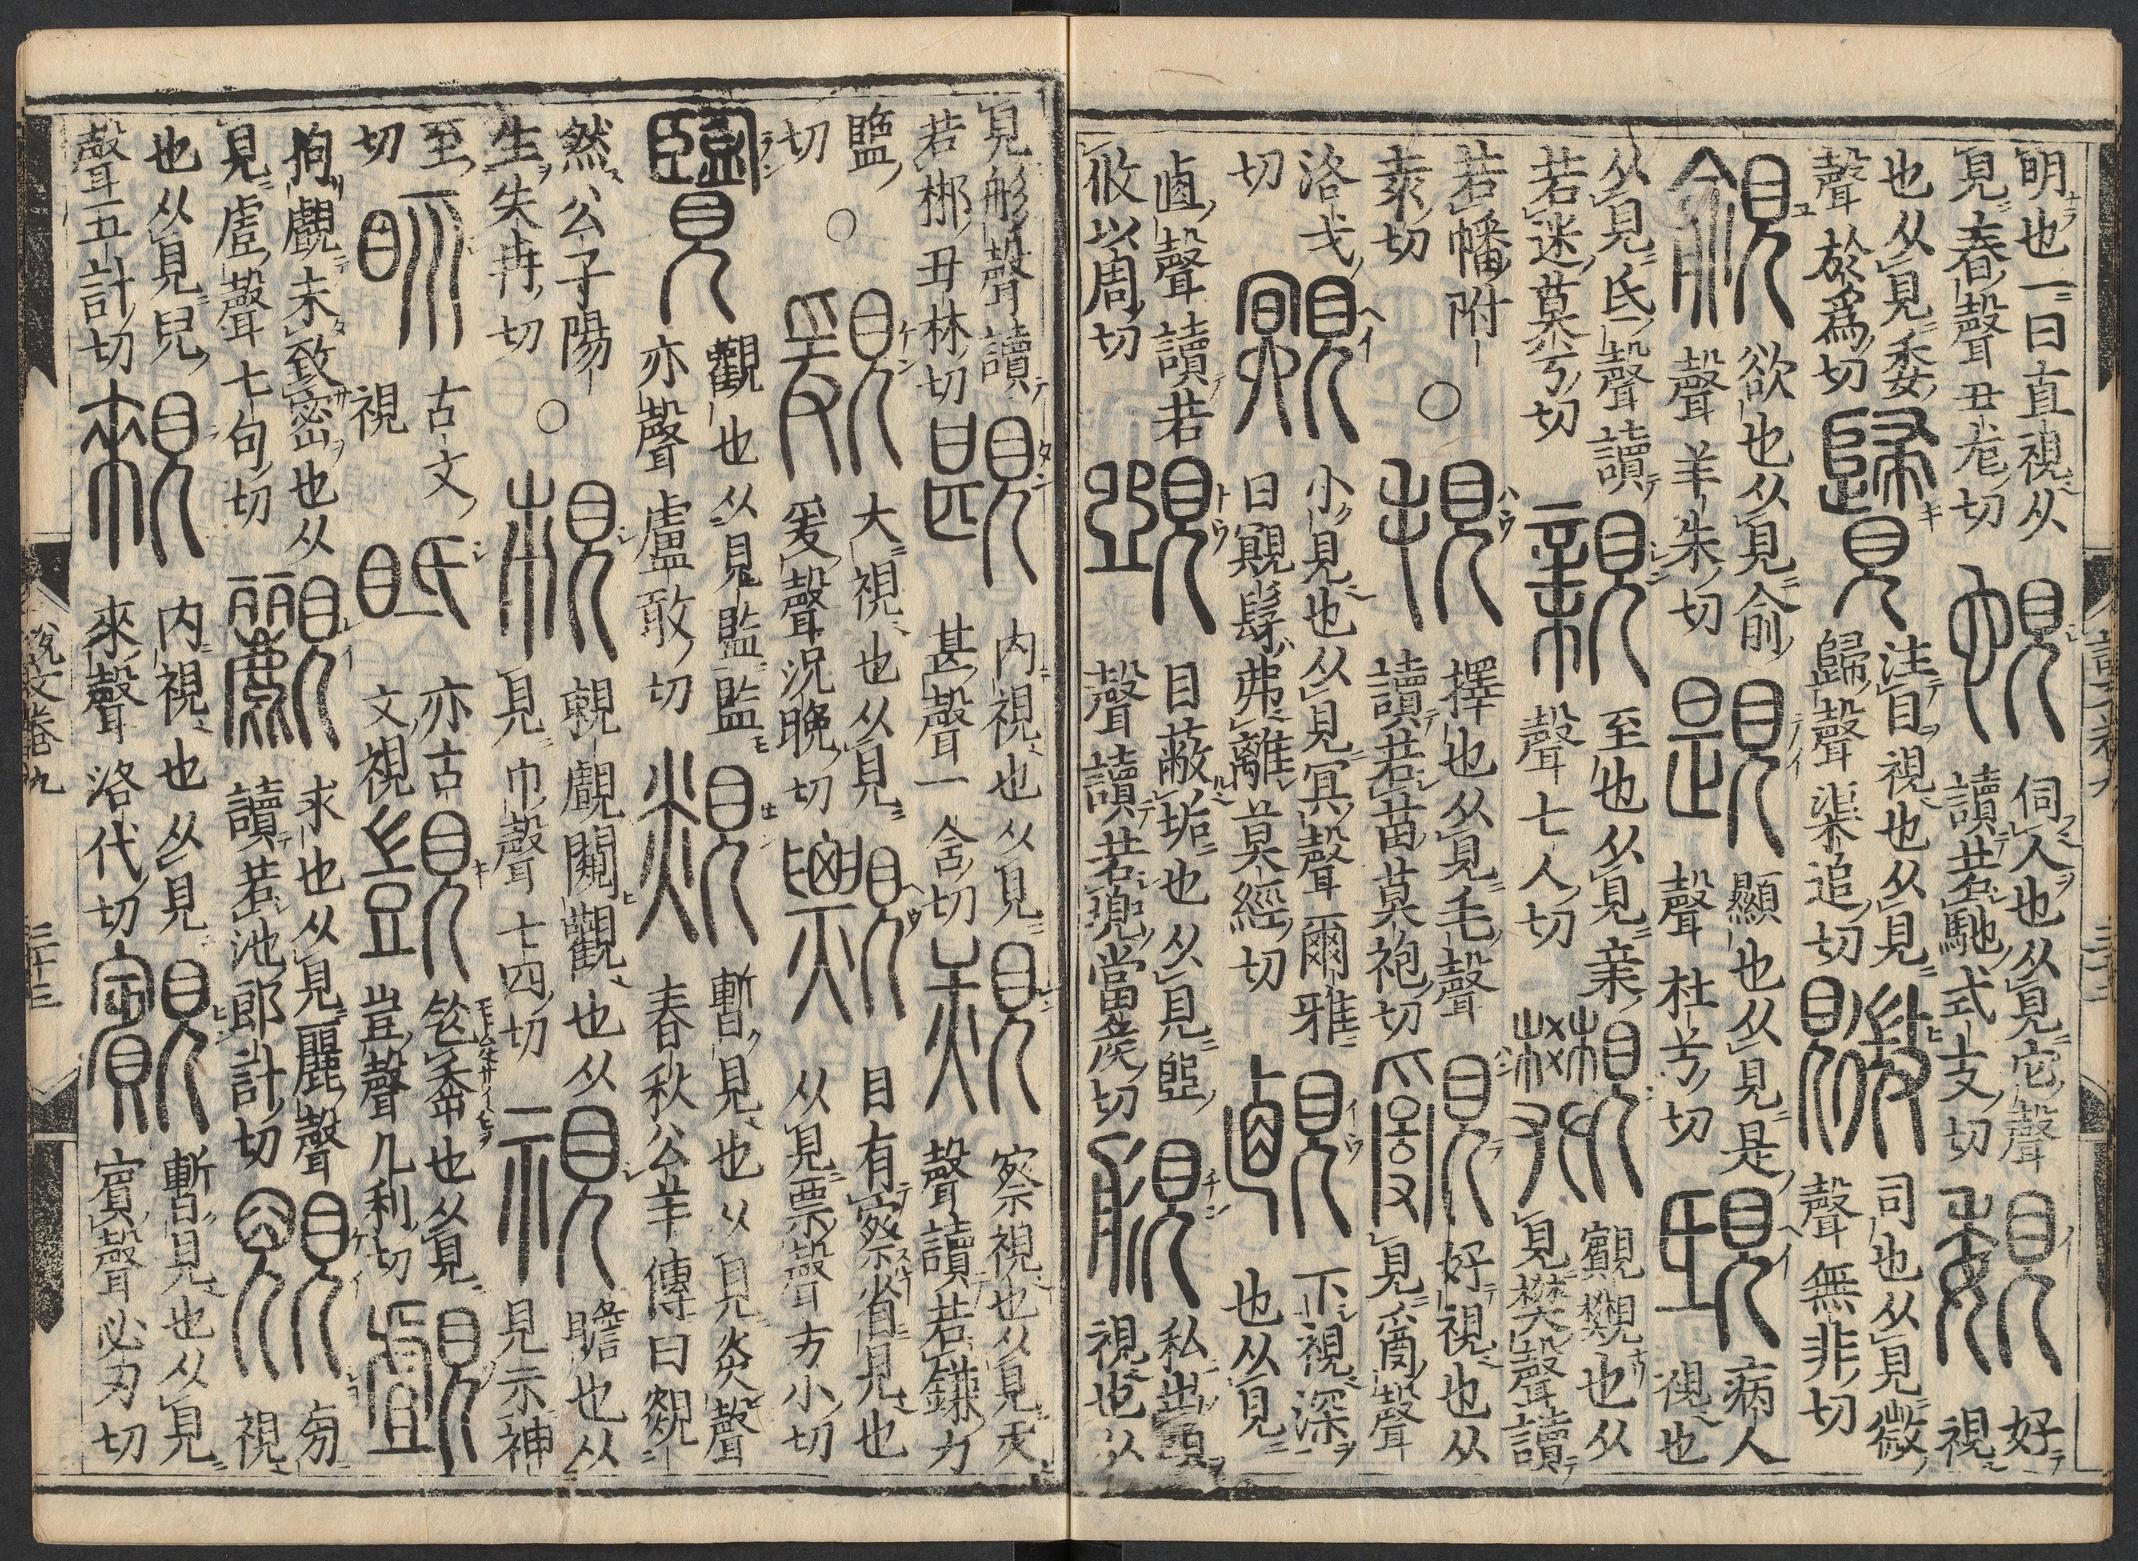 明也一曰直視从見春聲丑尨切 伺人也从見它聲讀若馳式支切 覣 好視
也从見委聲於爲切 注目視也从見歸聲渠追切 覹 司也从見微聲無非切
覦 欲也从見俞聲羊朱切 䚣 顯也从見是聲杜兮切 病人視也
从見氐聲讀若迷莫兮切 親 至也从見亲聲七人切 也从見樊聲讀
若幡附袁切 ○ 覒 擇也从見毛聲讀若苗莫袍切 覶 好視也从見𤔔聲
洛戈切 覭 小見也从見冥聲爾雅曰覭髳弗離莫經切 下視深也从見
卥聲讀若攸以周切 目蔽垢也从見𠁁聲讀若兜當矦切 私出頭視也从
見肜聲讀若郴丑林切 內視也从見甚聲一含切 覝 察視也从見𤆍聲讀若鎌力
鹽切 ○ 大視也从見爰聲況晚切 目有察省見也从見票聲方小切
覽 觀也从見監監亦聲盧敢切 覢 暫見也从見炎聲春秋公羊傳曰覢
然公子陽生失冉切 ○ 覰闚觀也从見聲七四切 視 瞻也从見示神
至切 眎 古文視 眂 亦古文視 覬 也从見豈聲几利切 覰
拘覰未致密也从見虘聲七句切 求也从見麗聲讀若池郎計切 㫄視
也从見兒聲五計切 內視也从見來聲洛代切 暫見也从見賓聲必刃切
說文卷九 三十三